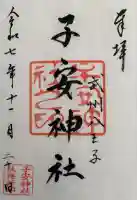 奉拝
武州八王子
子安神社
令和七年十一月二十